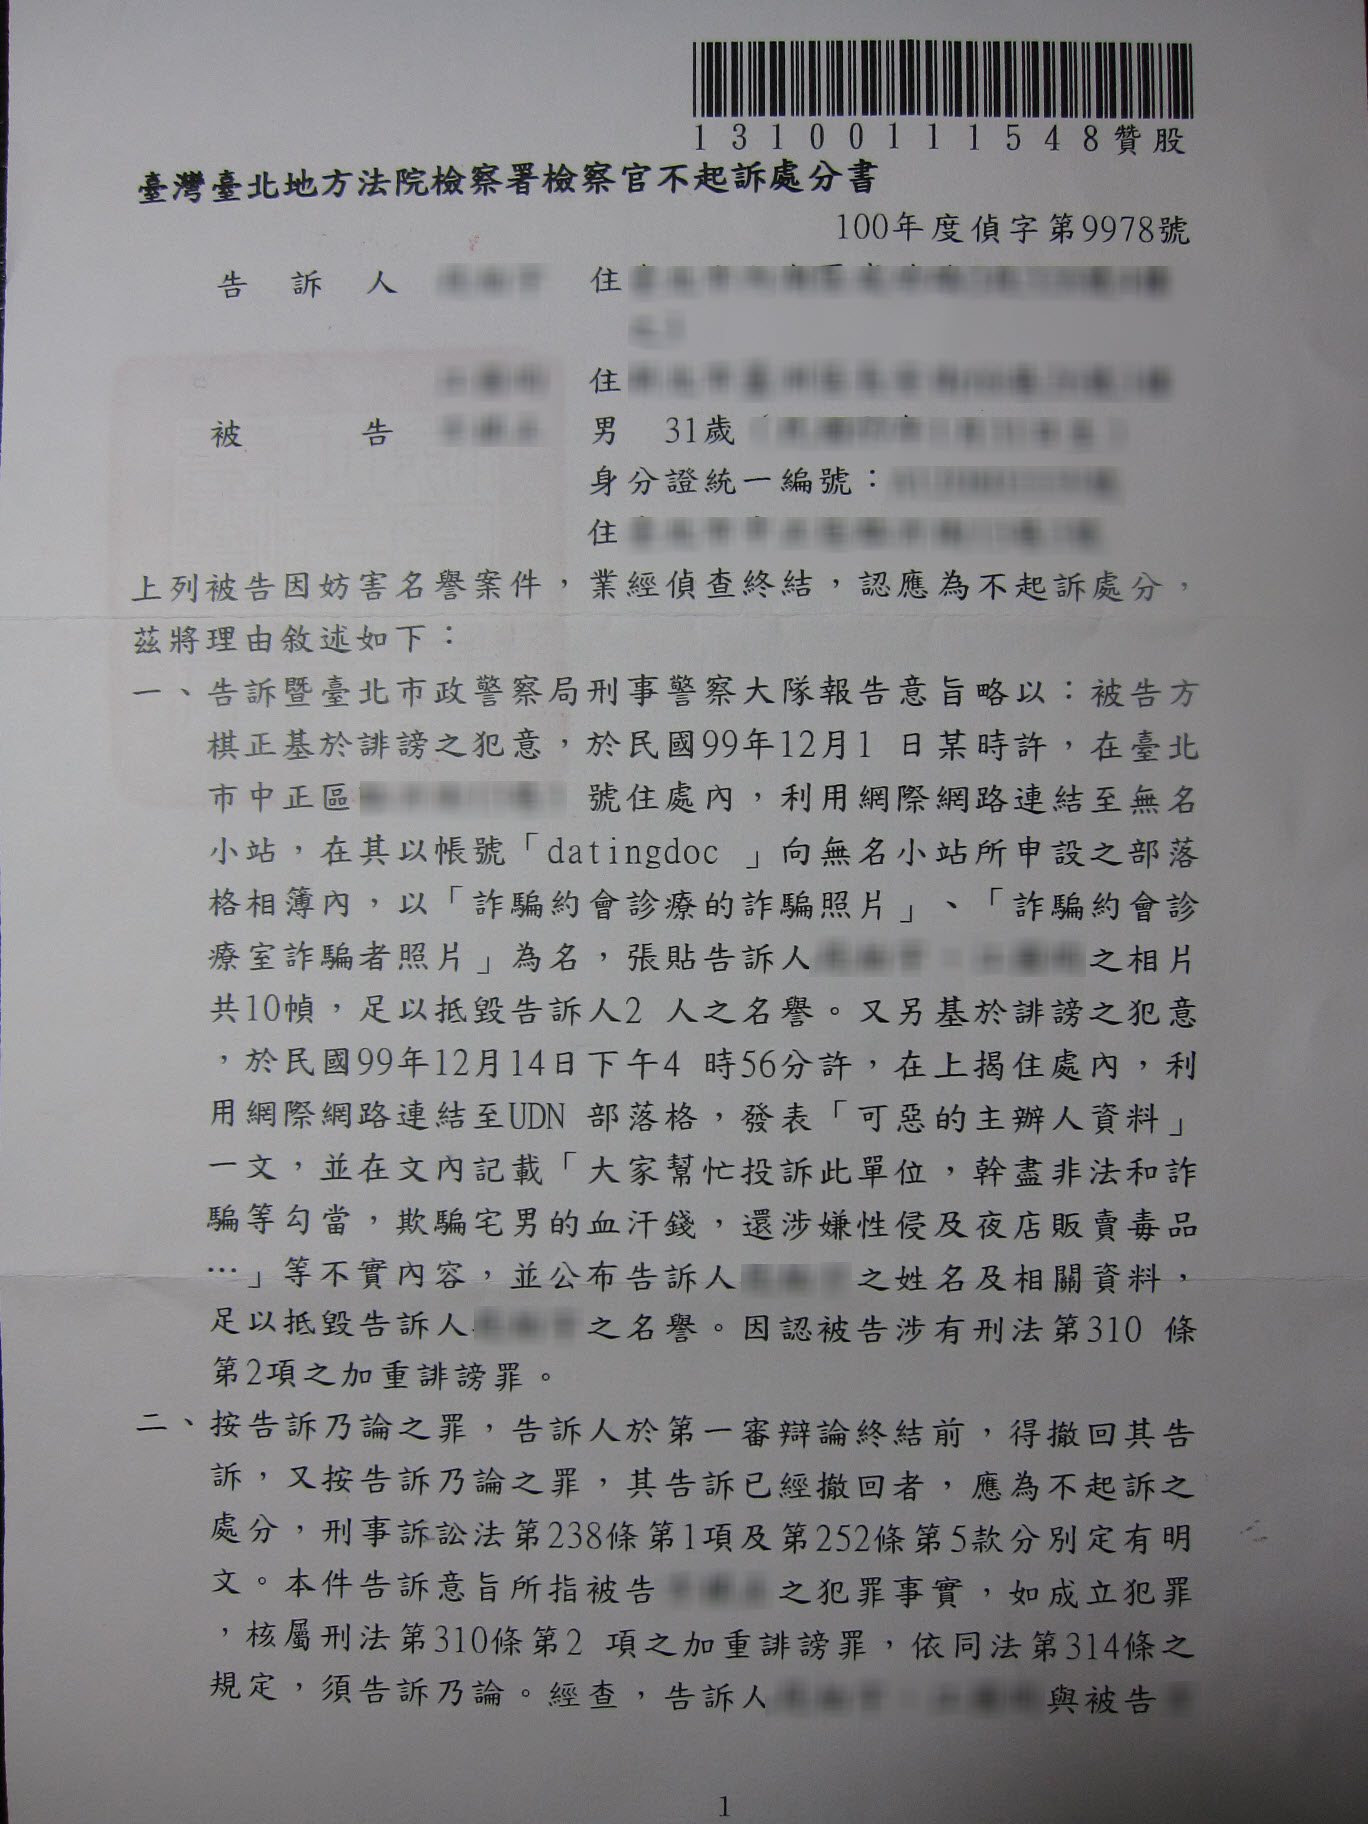 13100111548贊股
臺灣臺北地方法院檢察署檢察官不起訴處分書
100年度偵字第9978號
告訴人 住
住
被告 男 31歲
身分證統一編號：
住
上列被告因妨害名譽案件，業經偵查終結，認應為不起訴處分，
茲將理由敘述如下：
一、告訴暨臺北市政警察局刑事警察大隊報告意旨略以：被告方
棋正基於誹謗之犯意，於民國99年12月1 日某時許，在臺北
市中正區 號住處內，利用網際網路連結至無名
小站，在其以帳號「datingdoc 」向無名小站所申設之部落
格相簿內，以「詐騙約會診療的詐騙照片」、「詐騙約會診
療室詐騙者照片」為名，張貼告訴人 之相片
共10幀，足以抵毀告訴人2 人之名譽。又另基於誹謗之犯意
，於民國99年12月14日下午4 時56分許，在上揭住處內，利
用網際網路連結至UDN 部落格，發表「可惡的主辦人資料」
一文，並在文內記載「大家幫忙投訴此單位，幹盡非法和詐
騙等勾當，欺騙宅男的血汗錢，還涉嫌性侵及夜店販賣毒品
…」等不實內容，並公布告訴人 之姓名及相關資料，
足以抵毀告訴人 之名譽。因認被告涉有刑法第310 條
第2項之加重誹謗罪。
二、按告訴乃論之罪，告訴人於第一審辯論終結前，得撤回其告
訴，又按告訴乃論之罪，其告訴已經撤回者，應為不起訴之
處分，刑事訴訟法第238條第1項及第252條第5款分別定有明
文。本件告訴意旨所指被告 之犯罪事實，如成立犯罪
，核屬刑法第310條第2 項之加重誹謗罪，依同法第314條之
規定，須告訴乃論。經查，告訴人 與被告
1